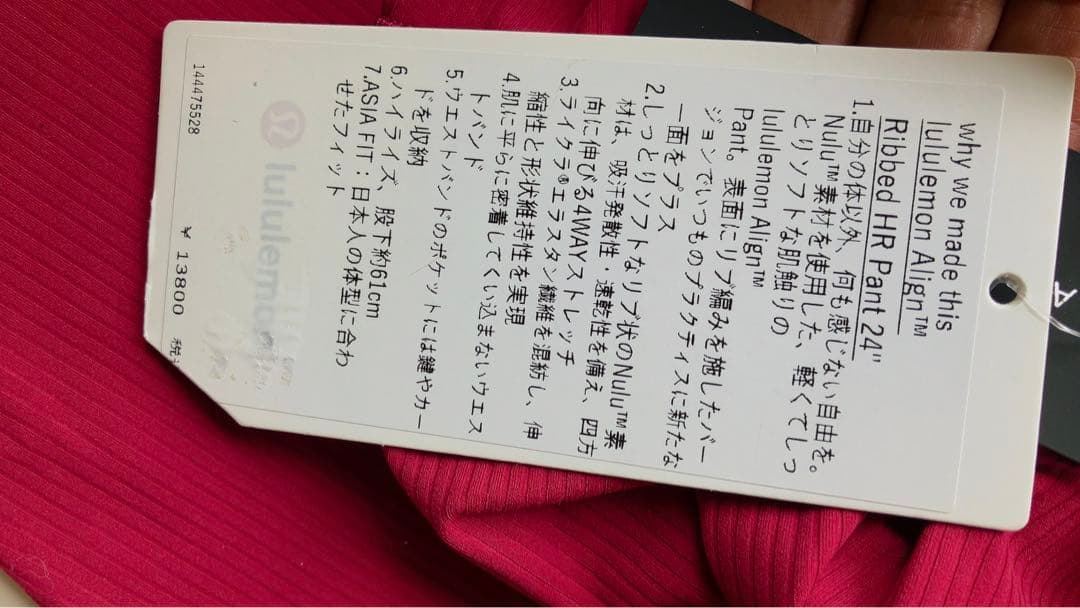 why we made this
lululemon Align™
Ribbed HR Pant 24"
1.自分の体以外、何も感じない自由を。
Nulu™素材を使用した、軽くてしっ
とりソフトな肌触りの
lululemon Align™
Pant。表面にリブ編みを施したバー
ジョンでいつものプラクティスに新たな
一面をプラス
2.しっとりソフトなリブ状のNulu™素
材は、吸汗発散性・速乾性を備え、四方
向に伸びる4WAYストレッチ
3.ライクラ®エラスタン繊維を混紡し、伸
縮性と形状維持性を実現
4.肌に平らに密着してくい込まないウエス
トバンド
5.ウエストバンドのポケットには鍵やカー
ドを収納
6.ハイライズ、股下約61cm
7.ASIA FIT：日本人の体型に合わ
せたフィット
lululemon
144475528
¥ 13800 税
A